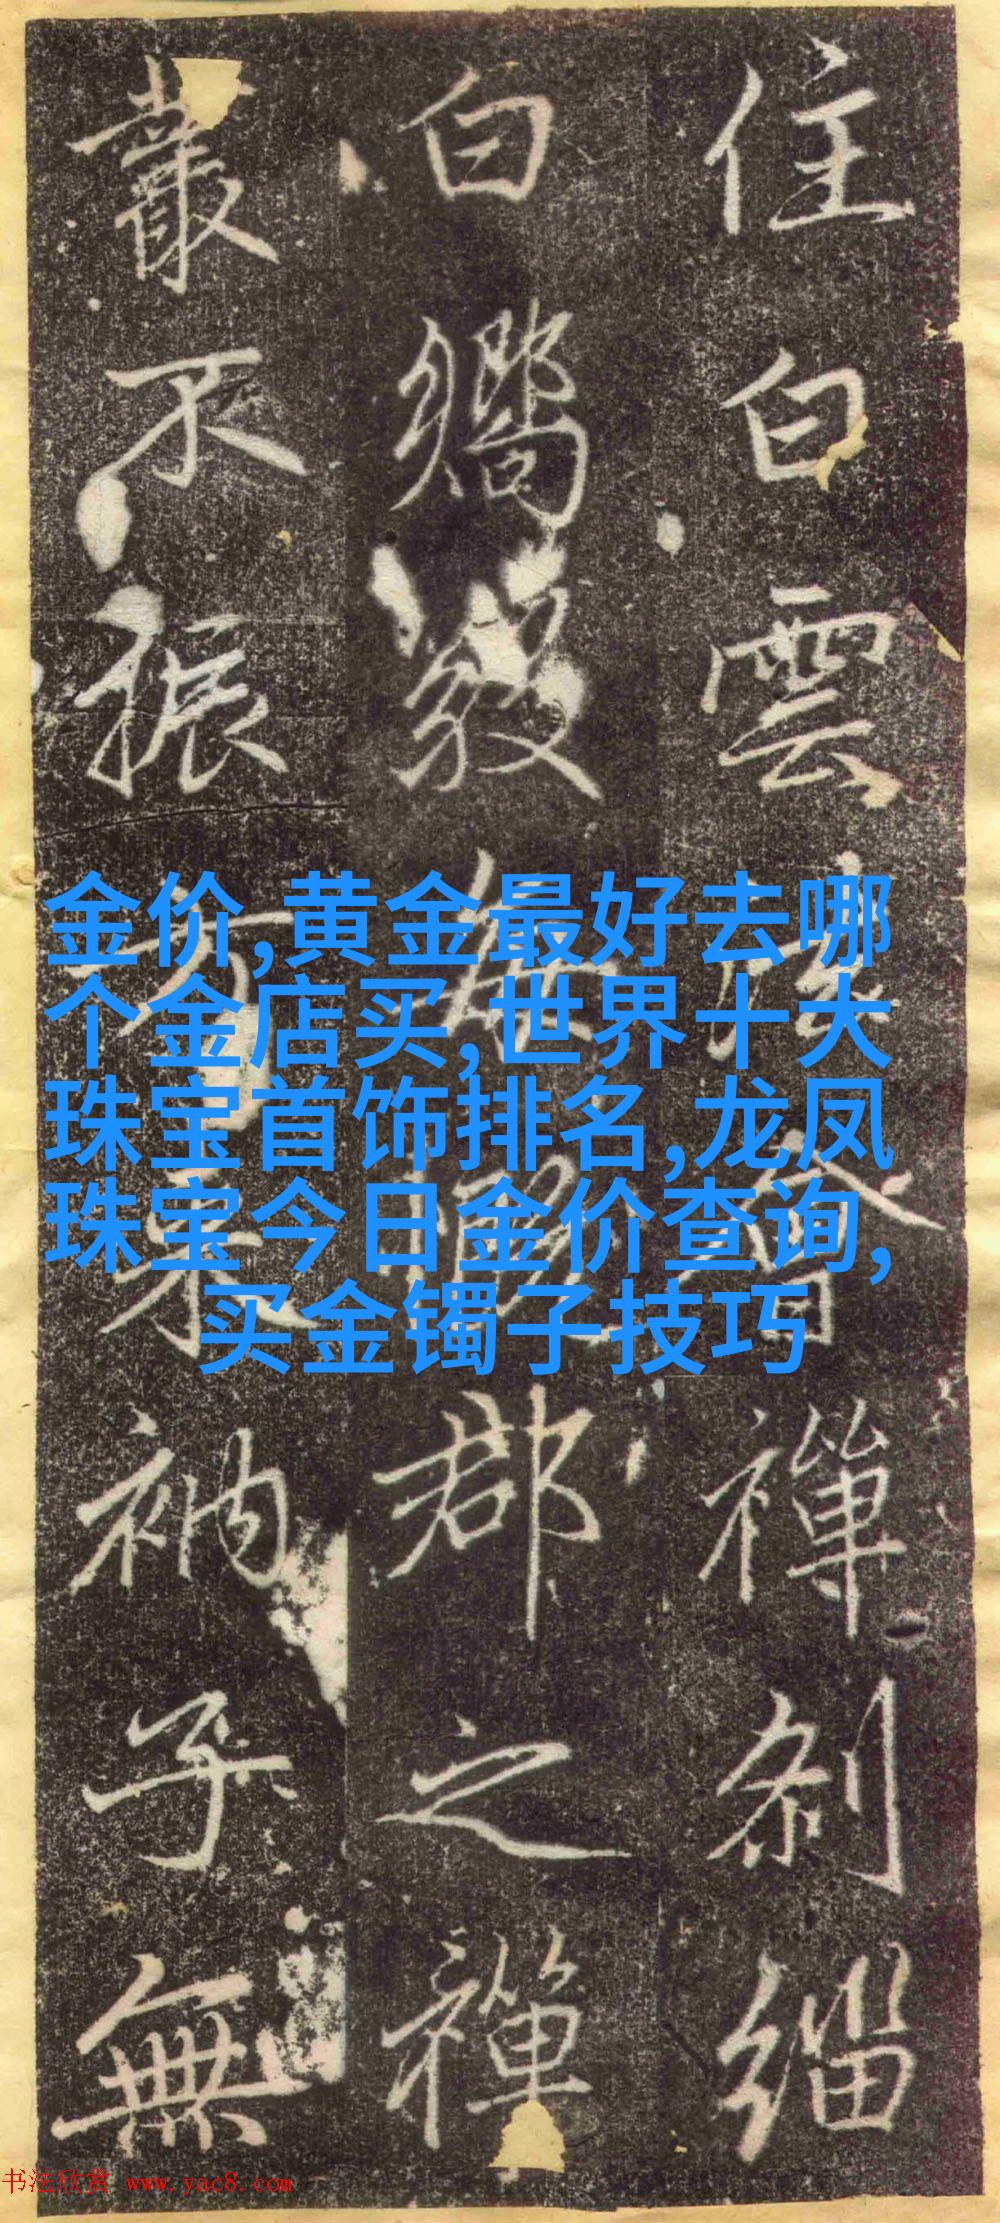 住白雲禪刹緇
白無郡之禪
叢不振方來衲子無
金价,黄金最好去哪
个金店买,世界十大
珠宝首饰排名,龙凤
珠宝今日金价查询,
买金镯子技巧
书法欣赏 www.yac8.com